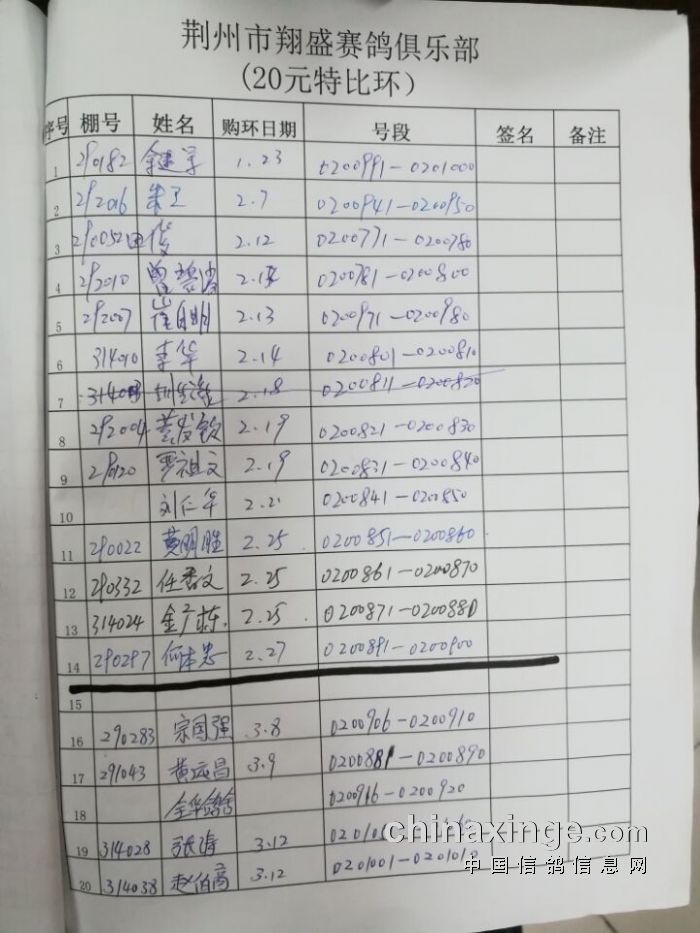 荆州市翔盛赛鸽俱乐部
(20元特比环)
序号 棚号 姓名 购环日期 号段 签名 备注
1 290182 1.23 0200991-0201000
2 292016 朱卫 2.7 0200941-0200950
3 290052 田俊 2.12 0200771-0200780
4 292010 2.14 0200781-0200800
5 292007 崔自明 2.13 0200971-0200980
6 314010 李华 2.14 0200801-0200810
7 2.18 0200811-0200820
8 292004 黄发钦 2.19 0200821-0200830
9 290120 贾祖文 2.19 0200831-0200840
10 刘仁华 2.21 0200841-0200850
11 290022 黄明胜 2.25 0200851-0200860
12 290332 任秀文 2.25 0200861-0200870
13 314024 金广栋 2.25 0200871-0200880
14 290297 何本忠 2.27 0200891-0200900
15
16 290283 宗国强 3.8 0200906-0200910
17 291043 黄远昌 3.9 0200881-0200890
18 全华鸽舍 0200916-0200920
19 314028 张涛 3.12
20 314038 赵伯高 3.12 0201001-0201010
chinaxinge.com
中国信鸽信息网